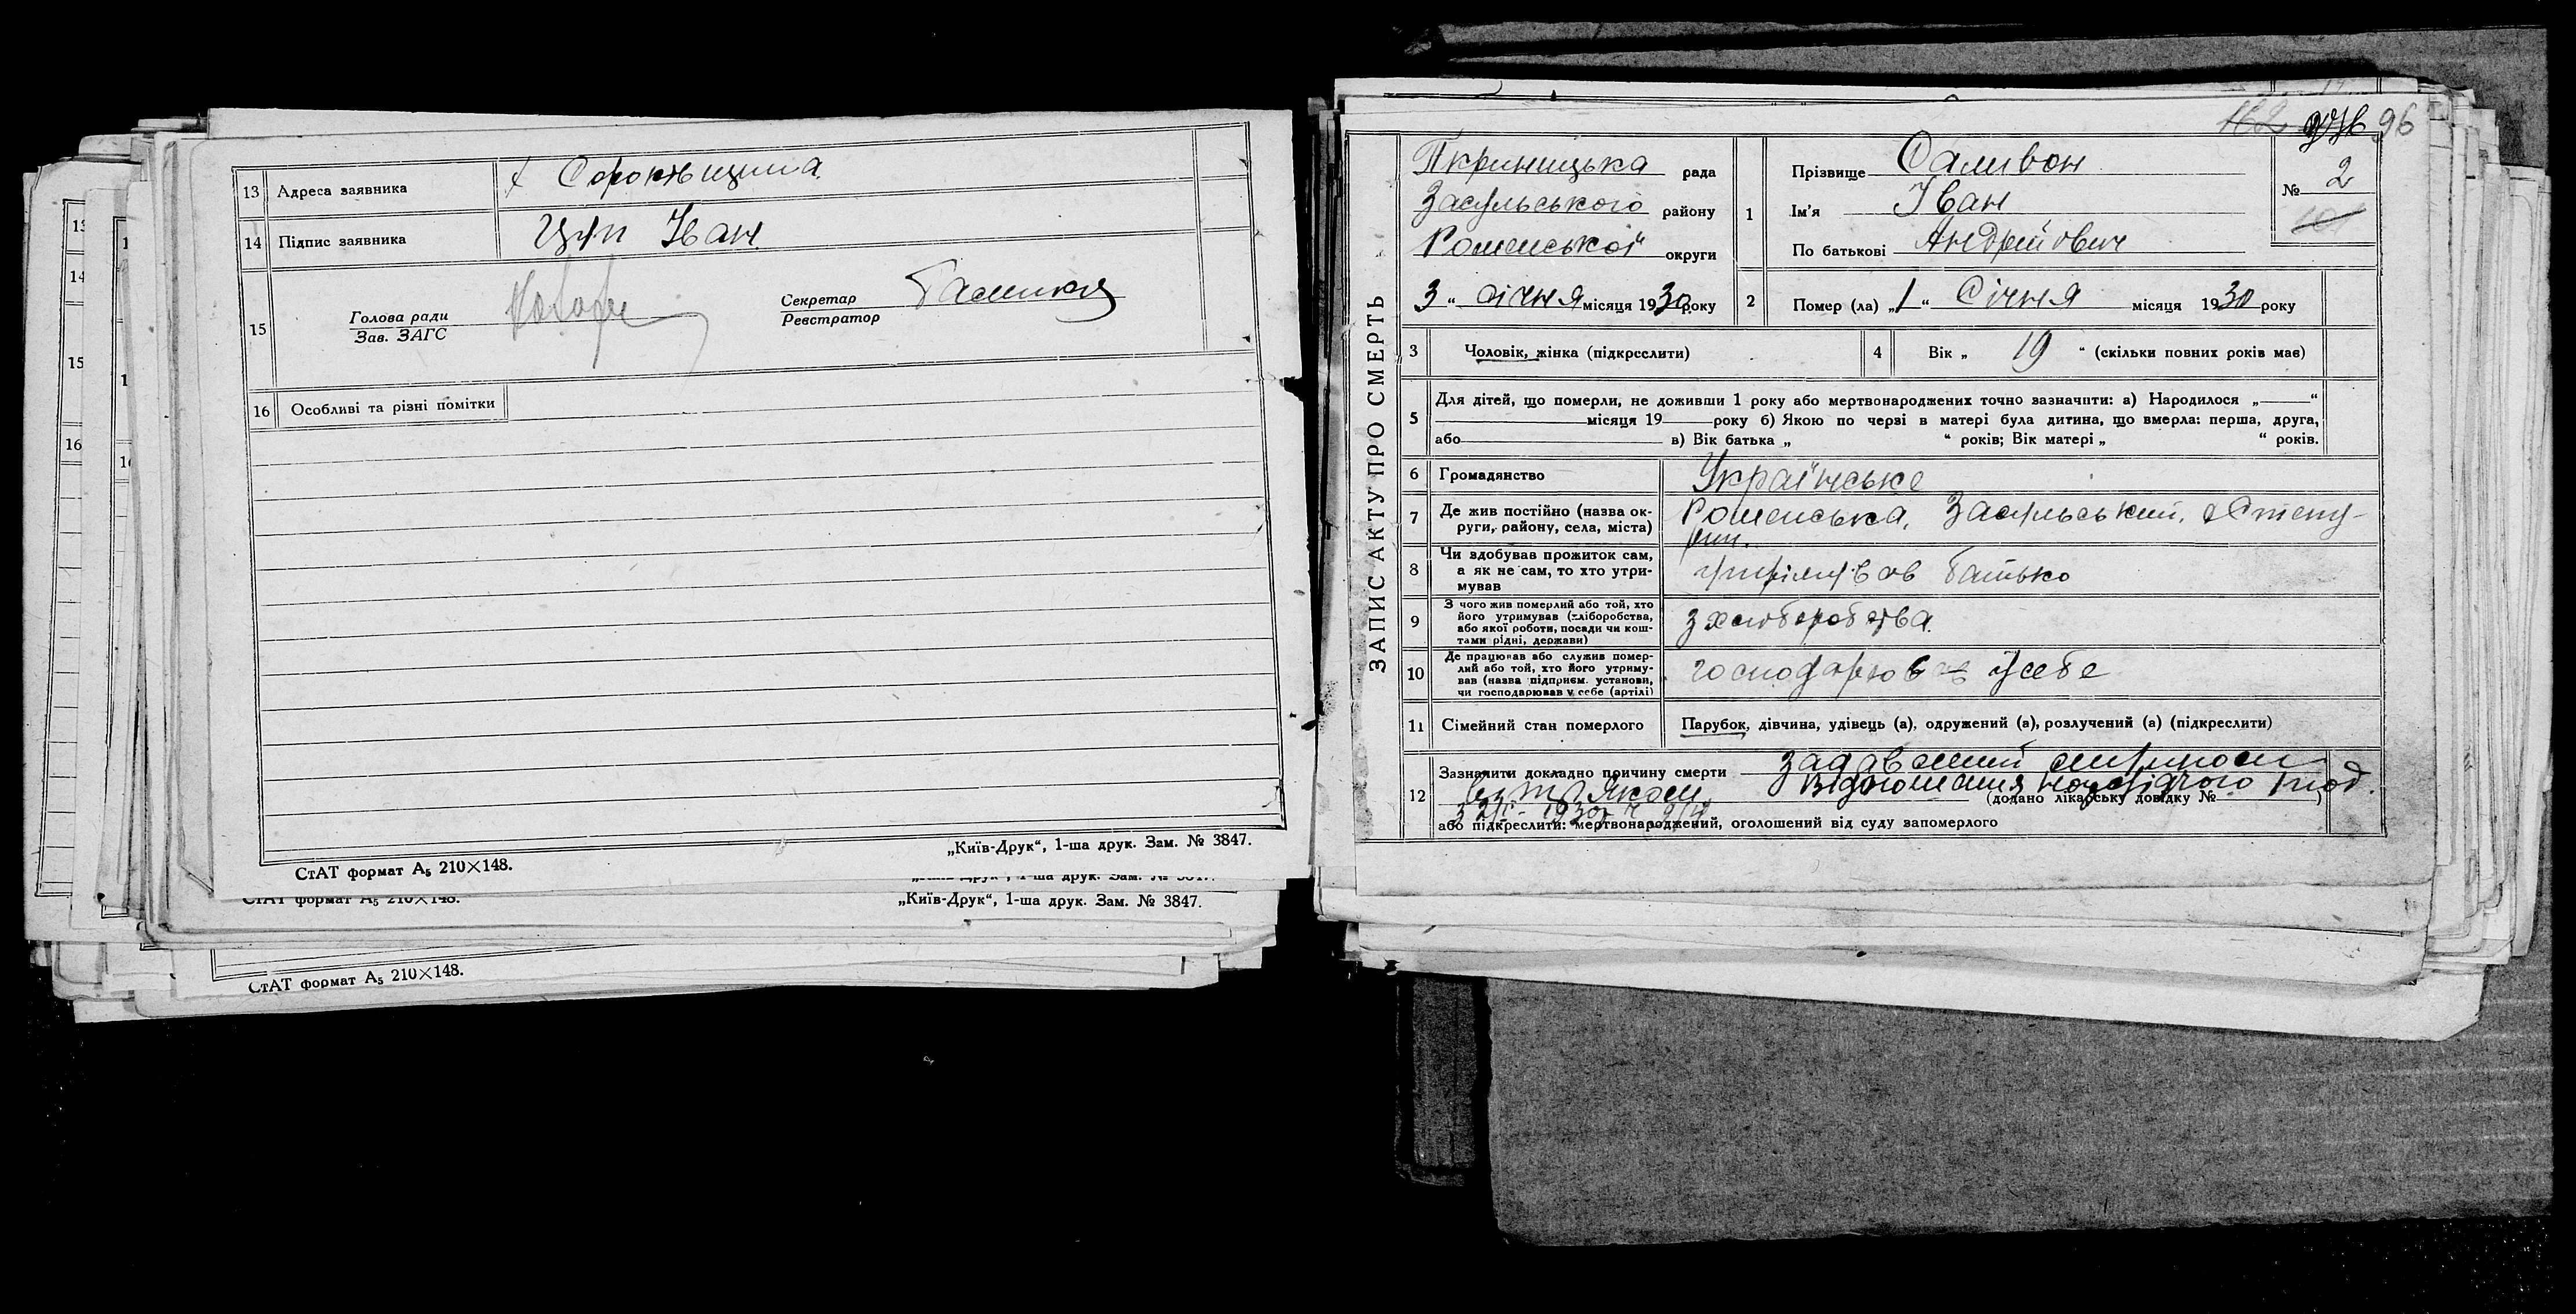 13 Адреса заявника х Сороківщина
14 Підпис заявника Цуп Іван
15 Голова ради
Зав. ЗАГС
Секретар
Реєстратор
16 Особливі та різні помітки
„Київ-Друк“, 1-ша друк. Зам. № 3847.
СтАТ формат А5 210×148.
„Київ-Друк“, 1-ша друк. Зам. № 3847.
СтАТ формат А5 210×148.
162 96
ЗАПИС АКТУ ПРО СМЕРТЬ
рада
Засульського району
Роменської округи
3 “ січня місяця 1930 року
1 Прізвище Саливон
Ім'я Іван
По батькові Андрійович
№ 2
2 Помер (ла) „1“ Січня місяця 1930 року
3 Чоловік, жінка (підкреслити)
4 Вік „ 19 “ (скільки повних років має)
5 Для дітей, що померли, не доживши 1 року або мертвонароджених точно зазначити: а) Народилося „ “
місяця 19 року б) Якою по черзі в матері була дитина, що вмерла: перша, друга,
або в) Вік батька „ “ років; Вік матері „ “ років.
6 Громадянство Українське
7 Де жив постійно (назва ок-
руги, району, села, міста) Роменська, Засульський,
8 Чи здобував прожиток сам,
а як не сам, то хто утри-
мував утрімував батько
9 З чого жив померлий або той, хто
його утримував (хліборобства,
або якої роботи, посади чи кош-
тами рідні, держави) з хліборобства
10 Де працював або служив помер-
лий або той, хто його утриму-
вав (назва підприєм. установи,
чи господарював у себе (артілі) господарював у себе
11 Сімейний стан померлого Парубок, дівчина, удівець (а), одружений (а), розлучений (а) (підкреслити)
12 Зазначити докладно причину смерти задавлений
вітряком Відношення
(додано лікарську довідку № )
або підкреслити: мертвонароджений, оголошений від суду запомерлого